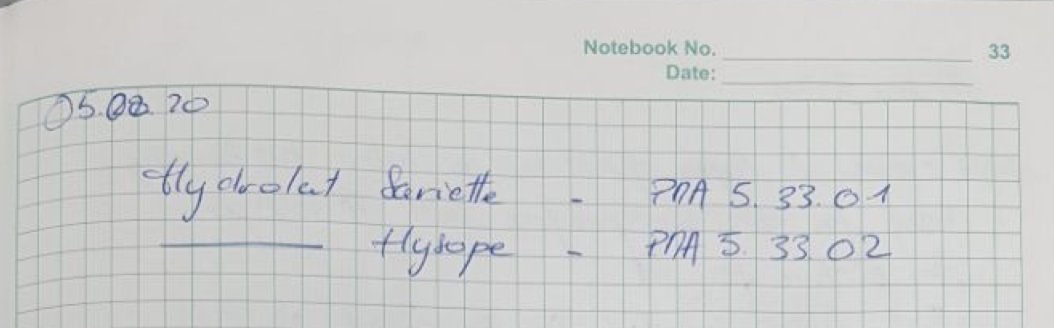 Notebook No. 33
Date:
05.08.20
Hydrolat Sariette - PMA 5.33.01
Hysope - PMA 5.33 02